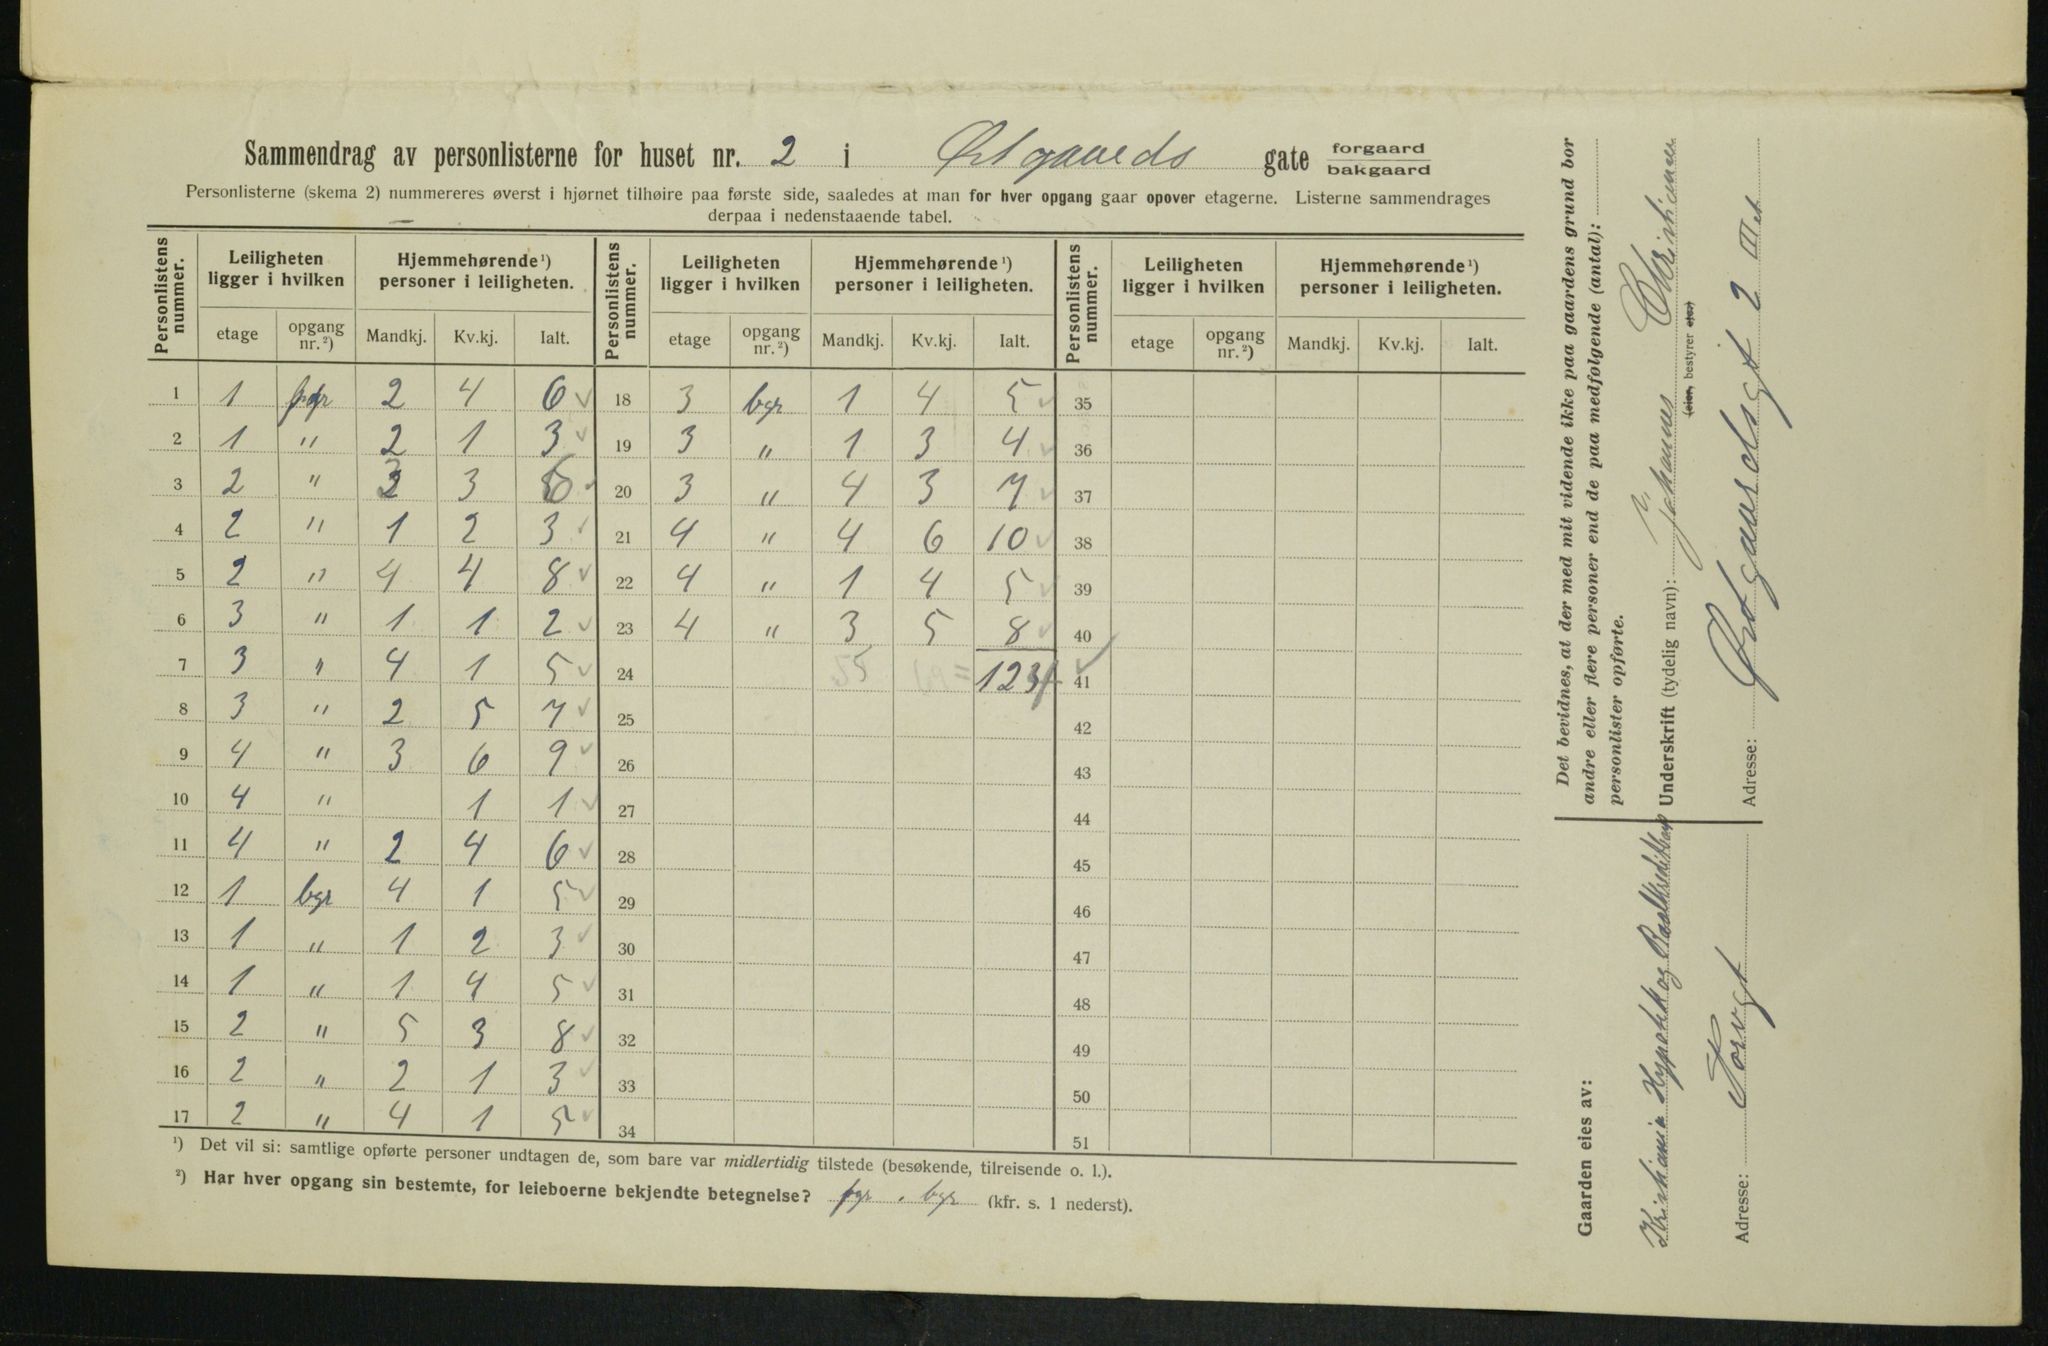 Sammendrag av personlisterne for huset nr. 2 i Østgaards gate forgaard bakgaard
Personlisterne (skema 2) nummereres øverst i hjørnet tilhøire paa første side, saaledes at man for hver opgang gaar opover etagerne. Listerne sammendrages
derpaa i nedenstaaende tabel.
Personlistens nummer. Leiligheten ligger i hvilken Hjemmehørende ¹) personer i leiligheten. Personlistens nummer. Leiligheten ligger i hvilken Hjemmehørende ¹) personer i leiligheten. Personlistens nummer. Leiligheten ligger i hvilken Hjemmehørende ¹) personer i leiligheten.
etage opgang nr. ²) Mandkj. Kv.kj. Ialt. etage opgang nr. ²) Mandkj. Kv.kj. Ialt. etage opgang nr. ²) Mandkj. Kv.kj. Ialt.
1 1 fgr 2 4 6 18 3 bgr 1 4 5 35
2 1 " 2 1 3 19 3 " 1 3 4 36
3 2 " 3 3 6 20 3 " 4 3 7 37
4 2 " 1 2 3 21 4 " 4 6 10 38
5 2 " 4 4 8 22 4 " 1 4 5 39
6 3 " 1 1 2 23 4 " 3 5 8 40
7 3 " 4 1 5 24 55 69 = 1234 41
8 3 " 2 5 7 25 42
9 4 " 3 6 9 26 43
10 4 " 1 1 27 44
11 4 " 2 4 6 28 45
12 1 bgr 4 1 5 29 46
13 1 " 1 2 3 30 47
14 1 " 1 4 5 31 48
15 2 " 5 3 8 32 49
16 2 " 2 1 3 33 50
17 2 " 4 1 5 34 51
¹) Det vil si: samtlige opførte personer undtagen de, som bare var midlertidig tilstede (besøkende, tilreisende o. l.).
²) Har hver opgang sin bestemte, for leieboerne bekjendte betegnelse? fgr. bgr (kfr. s. 1 nederst).
Det bevidnes, at der med mit vidende ikke paa gaardens grund bor
andre eller flere personer end de paa medfølgende (antal):
personlister opførte.
Underskrift (tydelig navn): Johannes Christiansen
(eier, bestyrer eler)
Adresse: Østgaardsgt 2 III et
Gaarden eies av:
Kristiania Hypothek og Realkreditbank
Adresse: Torvgt